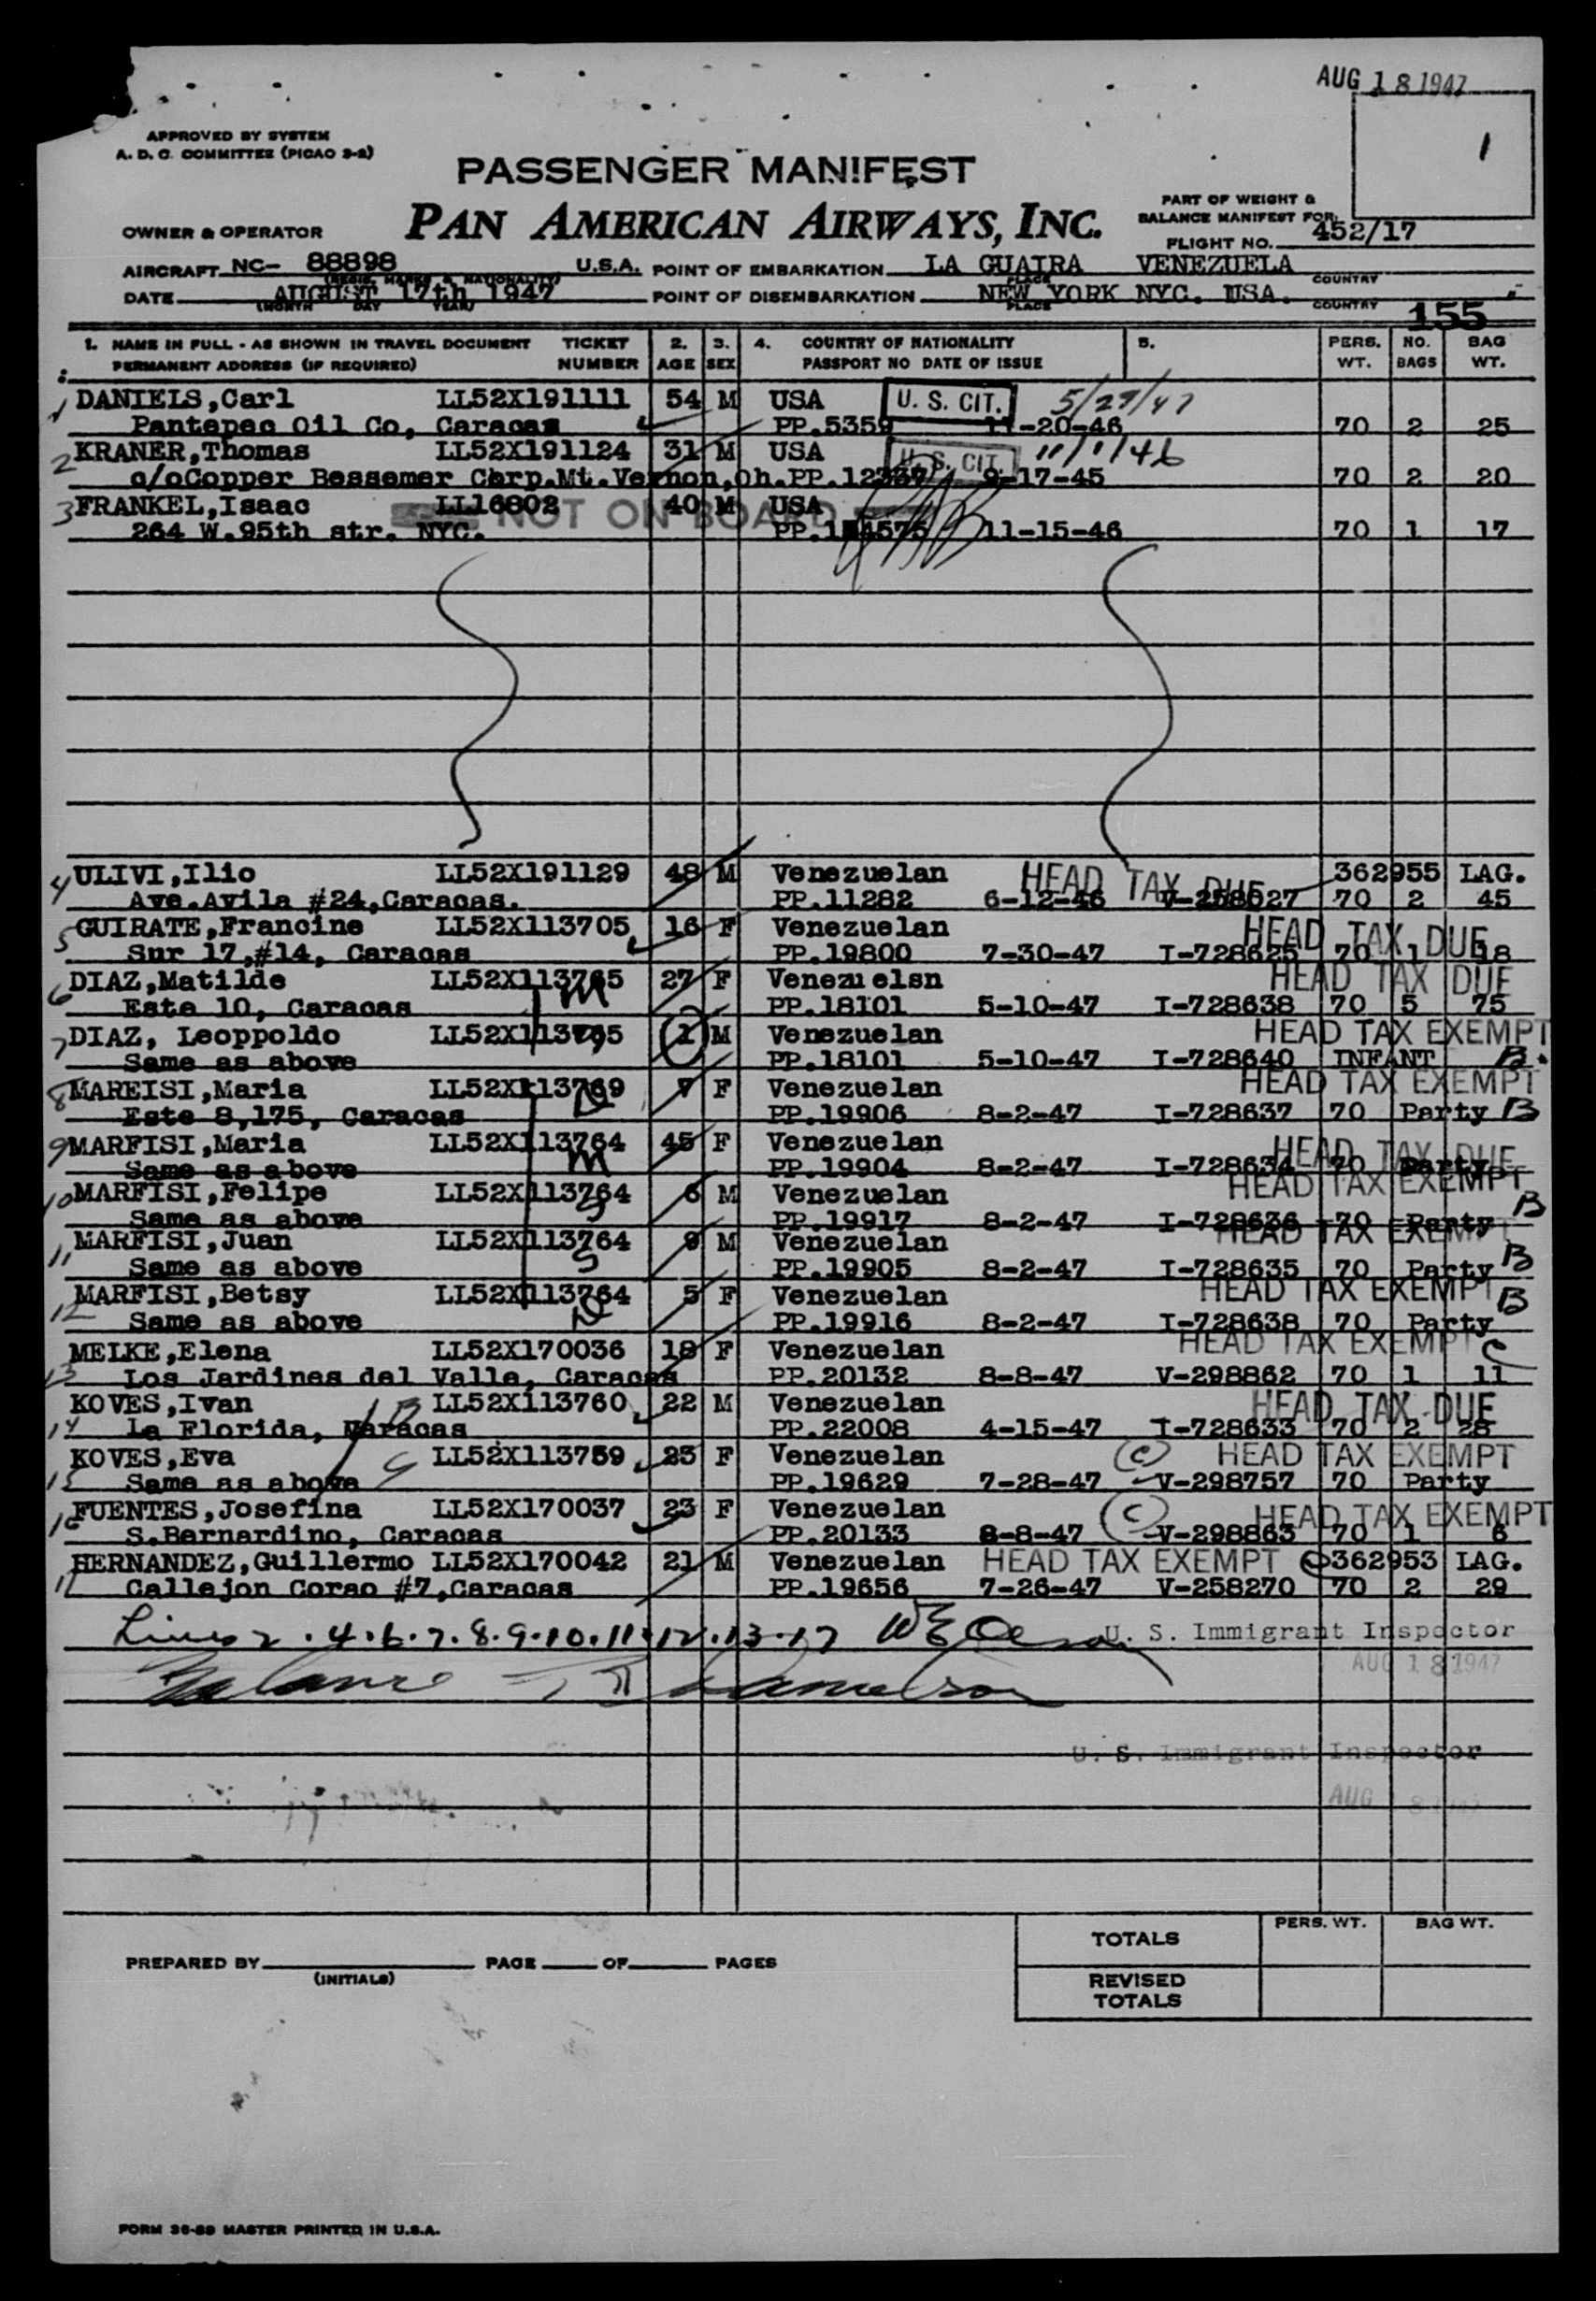 AUG 18 1947
1
APPROVED BY SYSTEM
A. D. C. COMMITTEE (PICAO 2-2)
PASSENGER MANIFEST
PAN AMERICAN AIRWAYS, INC.
PART OF WEIGHT &
BALANCE MANIFEST FOR
FLIGHT NO. 452/17
OWNER & OPERATOR
AIRCRAFT NC- 88898 U.S.A. POINT OF EMBARKATION LA GUAIRA VENEZUELA
(REGIS. MARKS & NATIONALITY) PLACE COUNTRY
DATE AUGUST 17th 1947 POINT OF DISEMBARKATION NEW YORK NYC. USA.
(MONTH DAY YEAR) PLACE COUNTRY
155
1. NAME IN FULL - AS SHOWN IN TRAVEL DOCUMENT TICKET 2. 3. 4. COUNTRY OF NATIONALITY 5. PERS. NO. BAG
PERMANENT ADDRESS (IF REQUIRED) NUMBER AGE SEX PASSPORT NO DATE OF ISSUE WT. BAGS WT.
1 DANIELS,Carl LL52X191111 54 M USA U. S. CIT. 5/29/47
Pantepec Oil Co, Caracas PP.5359 11-20-46 70 2 25
2 KRANER,Thomas LL52X191124 31 M USA U. S. CIT 11/1/46
c/oCopper Bessemer Corp.Mt.Vernon,Oh.PP.12767 9-17-45 70 2 20
3 FRANKEL,Isaac LL16802 NOT ON BOARD 40 M USA
264 W.95th str. NYC. PP. 11-15-46 70 1 17
4 ULIVI,Ilio LL52X191129 48 M Venezuelan HEAD TAX DUE 362955 LAG.
Ave.Avila #24,Caracas. PP.11282 6-12-46 V-258627 70 2 45
5 GUIRATE,Francine LL52X113705 16 F Venezuelan HEAD TAX DUE
Sur 17,#14, Caracas PP.19800 7-30-47 I-728625 70 1 18
6 DIAZ,Matilde LL52X113765 27 F Venezuelsn HEAD TAX DUE
Este 10, Caracas PP.18101 5-10-47 I-728638 70 5 75
7 DIAZ, Leoppoldo LL52X113765 1 M Venezuelan HEAD TAX EXEMPT
Same as above PP.18101 5-10-47 I-728640 INFANT B.
8 MAREISI,Maria LL52X113769 7 F Venezuelan HEAD TAX EXEMPT
Este 8,175, Caracas PP.19906 8-2-47 I-728637 70 Party B
9 MARFISI,Maria LL52X113764 45 F Venezuelan HEAD TAX DUE
Same as above PP.19904 8-2-47 I-728634 70 Party
10 MARFISI,Felipe LL52X113764 6 M Venezuelan HEAD TAX EXEMPT
Same as above PP.19917 8-2-47 I-728636 70 Party B
11 MARFISI,Juan LL52X113764 9 M Venezuelan HEAD TAX EXEMPT
Same as above PP.19905 8-2-47 I-728635 70 Party B
12 MARFISI,Betsy LL52X113764 5 F Venezuelan HEAD TAX EXEMPT
Same as above PP.19916 8-2-47 I-728638 70 Party B
13 MELKE,Elena LL52X170036 18 F Venezuelan HEAD TAX EXEMPT C
Los Jardines del Valle, Caracas PP.20132 8-8-47 V-298862 70 1 11
14 KOVES,Ivan LL52X113760 22 M Venezuelan HEAD TAX DUE
La Florida, Caracas PP.22008 4-15-47 I-728633 70 2 28
15 KOVES,Eva LL52X113759 23 F Venezuelan C HEAD TAX EXEMPT
Same as above PP.19629 7-28-47 V-298757 70 Party
16 FUENTES,Josefina LL52X170037 23 F Venezuelan C HEAD TAX EXEMPT
S.Bernardino, Caracas PP.20133 8-8-47 V-298863 70 1 6
17 HERNANDEZ,Guillermo LL52X170042 21 M Venezuelan HEAD TAX EXEMPT C 362953 LAG.
Callejon Corao #7,Caracas PP.19656 7-26-47 V-258270 70 2 29
Lines 2.4.6.7.8.9.10.11.12.13.17 U. S. Immigrant Inspector
AUG 18 1947
Balance
U. S. Immigrant Inspector
AUG
PREPARED BY PAGE OF PAGES
(INITIALS)
TOTALS PERS. WT. BAG WT.
REVISED
TOTALS
FORM 36-89 MASTER PRINTED IN U.S.A.